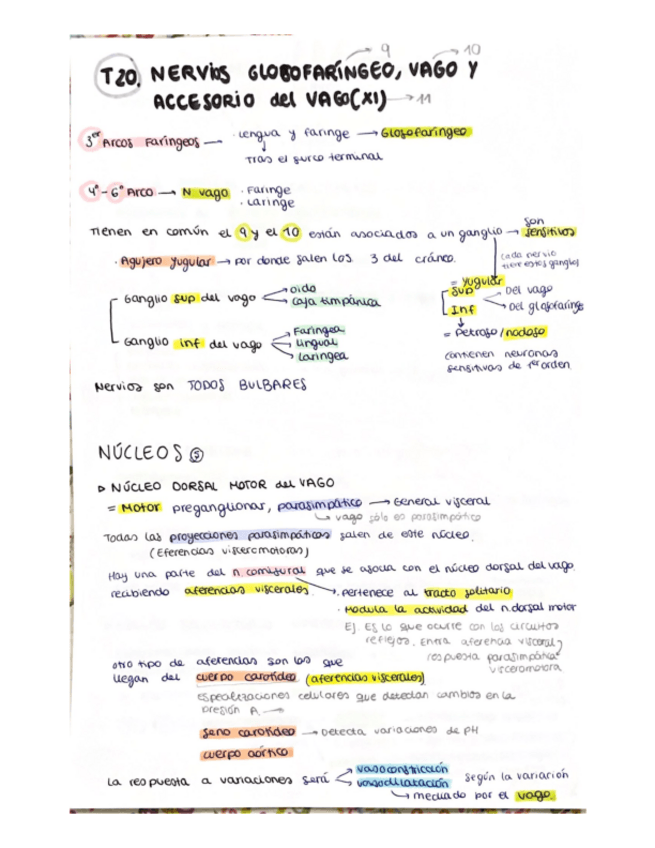 9 10
T20. NERVIOS GLOSOFARÍNGEO, VAGO Y
ACCESORIO del VAGO (XI) → 11
3er Arcos Faríngeos — · Lengua y faringe → Glosofaríngeo
Tras el surco terminal
4º-6º Arco → N vago · Faringe
· Laringe
Tienen en común el 9 y el 10 están asociados a un ganglio → son sensitivos
· Agujero yugular → por donde salen los 3 del cráneo.
cada nervio
tiene estos ganglios
Ganglio sup del vago
oído
caja timpánica
Ganglio inf del vago
Faríngea
Lingual
Laríngea
= yugular
Sup
Inf
Del vago
Del glosofaríng
= Petroso / nodoso
contienen neuronas
sensitivas de 1er orden
Nervios son TODOS BULBARES
NÚCLEOS ⑤
▷ NÚCLEO DORSAL MOTOR del VAGO
= Motor preganglionar, parasimpático → General visceral
vago sólo es parasimpático
Todas las proyecciones parasimpáticas salen de este núcleo.
(Eferencias visceromotoras)
Hay una parte del n. comisural que se asocia con el núcleo dorsal del vago.
recibiendo aferencias viscerales. · pertenece al tracto solitario
· Modula la actividad del n. dorsal motor
Ej. Es lo que ocurre con los circuitos
reflejos. Entra aferencia visceral y
respuesta parasimpática
visceromotora
otro tipo de aferencias son las que
llegan del cuerpo carotídeo (aferencias viscerales)
Especializaciones celulares que detectan cambios en la
presión A. →
seno carotídeo → Detecta variaciones de PH
cuerpo aórtico
La respuesta a variaciones será
vasoconstricción
vasodilatación
según la variación
→ mediado por el vago.